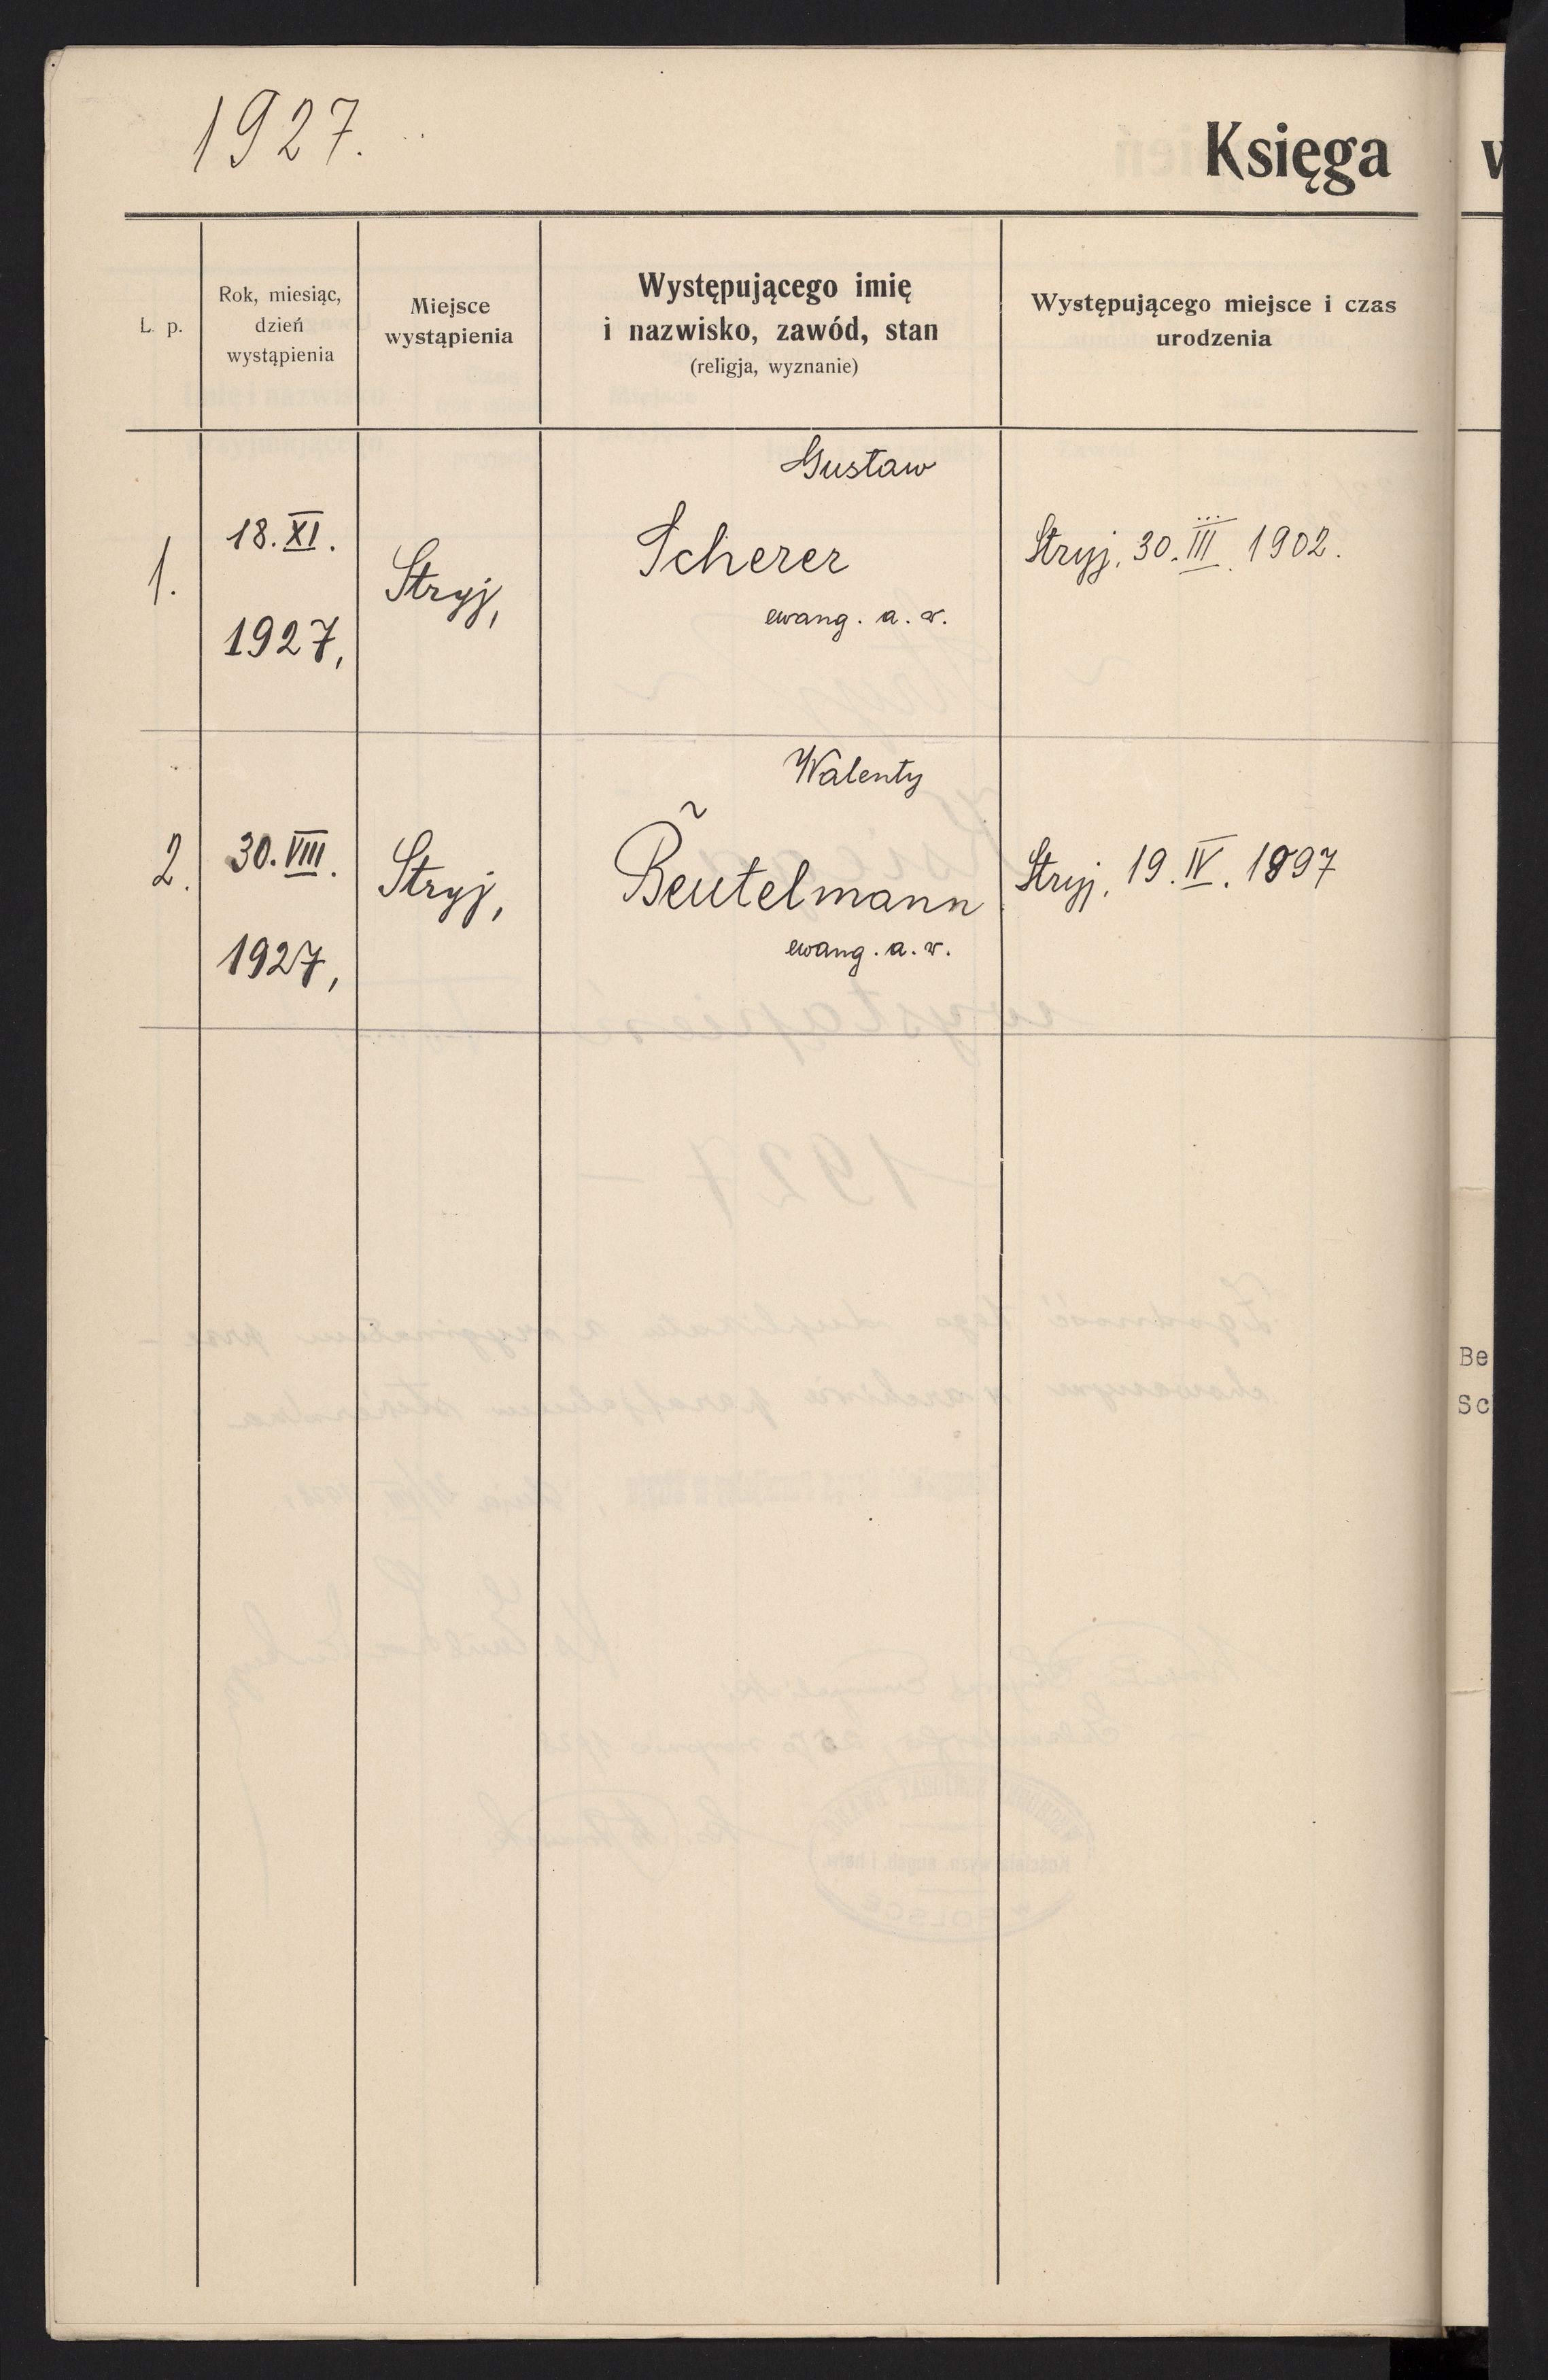 1927.
Księga
L. p.
Rok, miesiąc,
dzień
wystąpienia
Miejsce
wystąpienia
Występującego imię
i nazwisko, zawód, stan
(religja, wyznanie)
Występującego miejsce i czas
urodzenia
1.
18. XI.
1927,
Stryj,
Gustaw
Scherer
ewang. a. w.
Stryj, 30. III. 1902.
2.
30. VIII.
1927,
Stryj,
Walenty
Beutelmann
ewang. a. w.
Stryj, 19. IV. 1897
Be
Sc